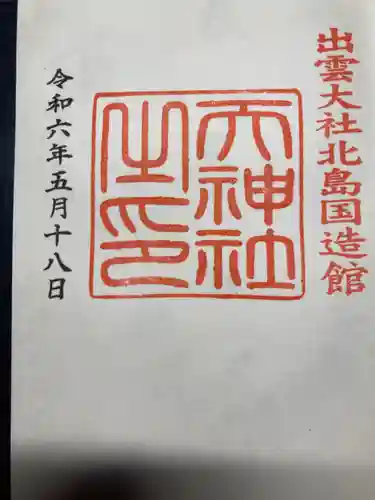 出雲大社北島国造館
天神社
之印
令和六年五月十八日